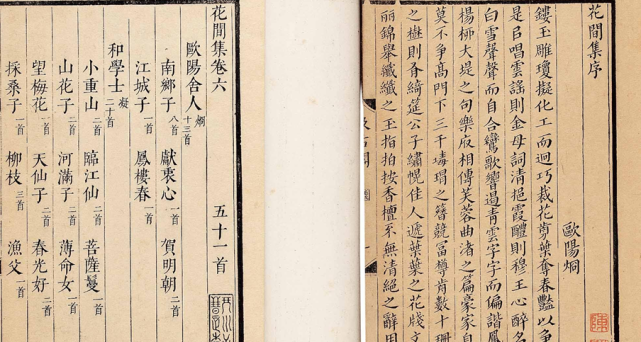 花間集序
歐陽炯
鏤玉雕瓊擬化工而迴巧裁花剪葉奪春豔以爭
是㠯唱雲謠則金母詞清挹霞醴則穆王心醉名
白雪聲聲而自合鸞歌響遏青雲字字而偏諧鳳
楊柳大堤之句樂府相傳芙蓉曲渚之篇豪家自
莫不爭高門下三千瑇瑁之簪競富樽前數十珊
之樹則有綺筵公子繡幌佳人遞葉葉之花牋文
麗錦舉纖纖之玉指拍按香檀不無清絕之辭用
花間集卷六 五十一首
歐陽舍人炯十三首
南鄉子八首 獻衷心一首 賀明朝二首
江城子一首 鳳樓春一首
和學士凝二十首
小重山二首 臨江仙二首 菩薩蠻一首
山花子二首 河滿子二首 薄命女一首
望梅花一首 天仙子二首 春光好二首
採桑子一首 柳枝三首 漁父一首